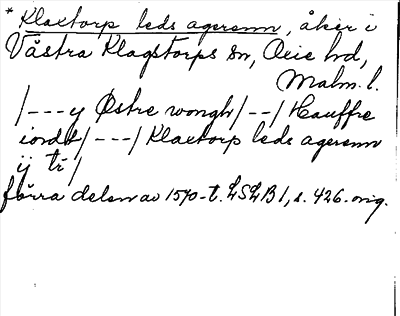 * Klaxtorp leds agerenn, åker i
Västra Klagstorps sn, Oxie hd,
Malm. l.
/---y Østre wongh/--/ Hauffre
iordt/---/ Klaxtorp leds agerenn
ij tr /
förra delen av 1570-t. LSLB 1, s. 426. orig.